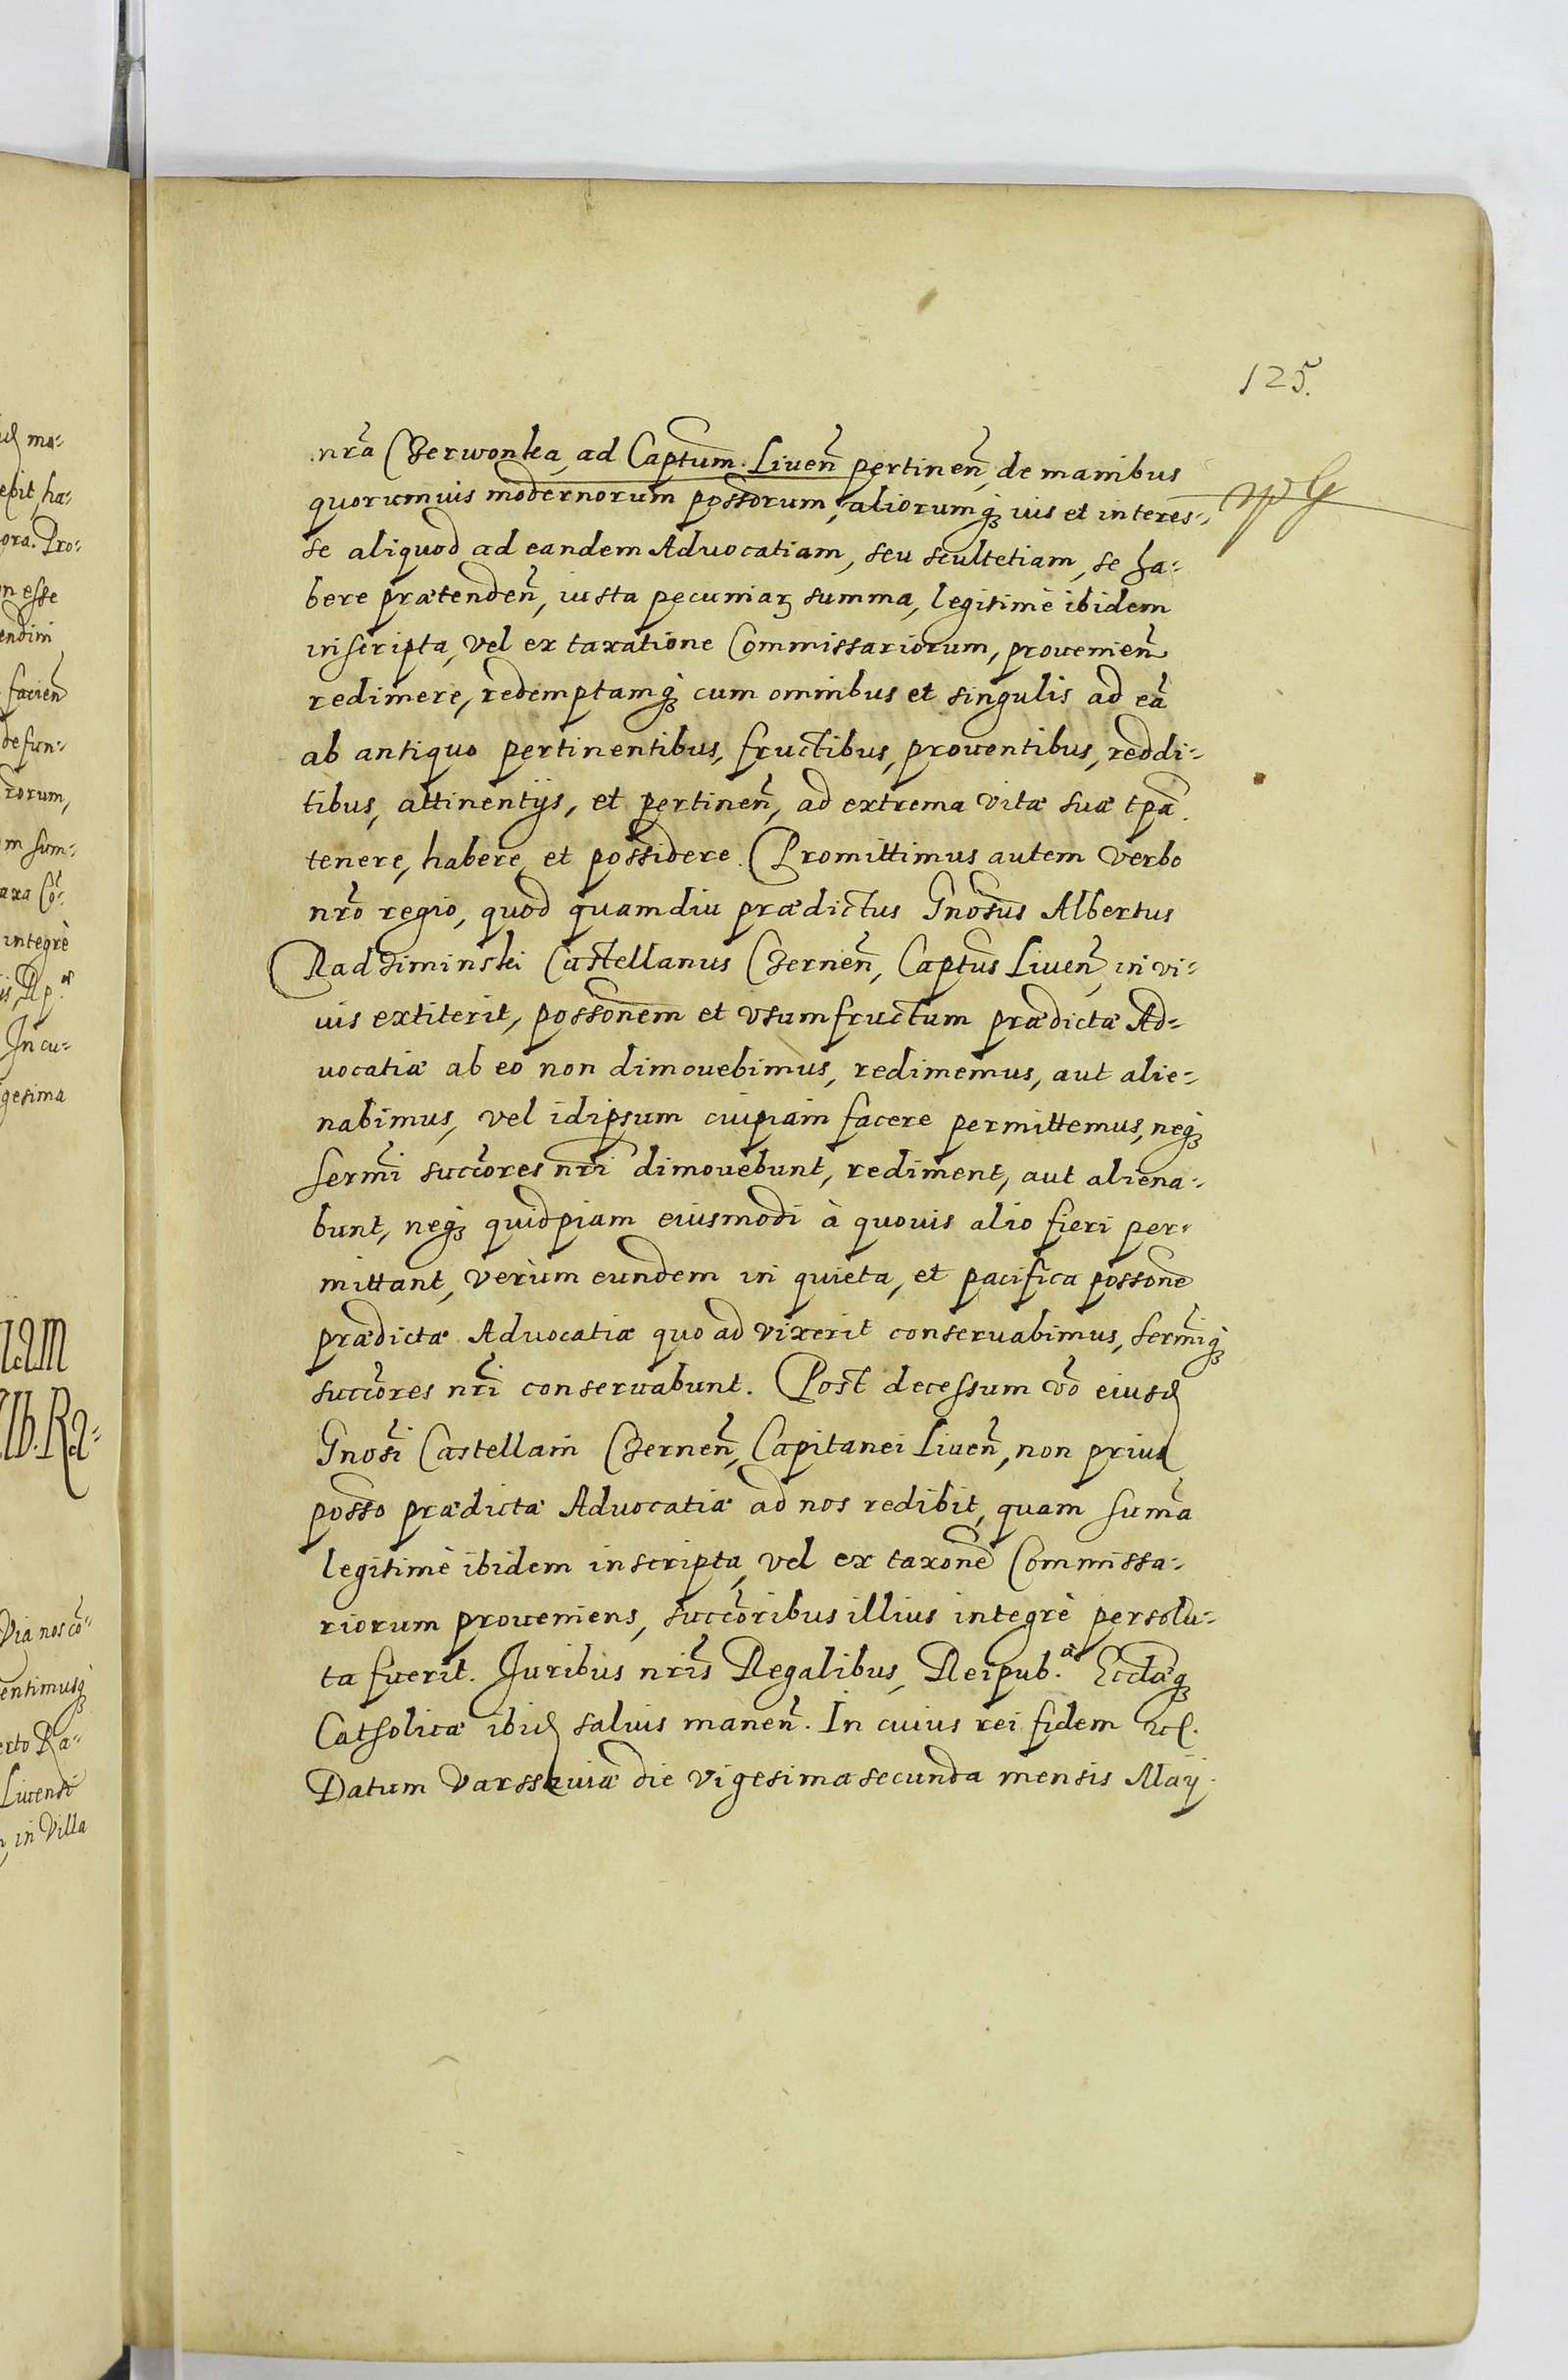 125.
nr̃a Czerwonka, ad Captum. Liueñ pertineñ, de manibus
quorumuis modernorum possorum, aliorumq; ius et interes-
se aliquod ad eandem Aduocatiam, seu scultetiam, se ha-
bere prætendeñ, iusta pecuniaꝝ summa, legitimè ibidem
inscripta, vel ex taxatione Commissariorum, prouenieñ
redimere, redemptamq; cum omnibus et singulis ad eã
ab antiquo pertinentibus, fructibus, prouentibus, reddi-
tibus, attinentijs, et pertineñ, ad extrema vitæ suæ tp̃a
tenere, habere, et possidere. Promittimus autem verbo
nr̃o regio, quod quamdiu prædictus Gnosus Albertus
Radziminski Castellanus Czernieñ, Captus Liueñ, in vi-
uis extiterit, possonem et vsumfructum prædictæ Ad-
uocatiæ ab eo non dimouebimus, redimemus, aut alie-
nabimus, vel idipsum cuipiam facere permittemus, neq;
serm̃i succõres nr̃i dimouebunt, rediment, aut aliena-
bunt, neq; quidpiam eiusmodi à quouis alio fieri per-
mittant, verùm eundem in quieta, et pacifica possone
prædictæ Aduocatiæ quo ad vixerit conseruabimus, serm̃iq;
succõres nr̃i conseruabunt. Post decessum ṽo eiusd
Gnosi Castellani Czerneñ, Capitanei Liueñ, non prius
posso prædictæ Aduocatiæ ad nos redibit, quam sum̃a
legitimè ibidem inscripta, vel ex taxone Commissa-
riorum proueniens, succõribus illius integrè persolu-
ta fuerit. Juribus nr̃is Regalibus, Reipub.æ Ecclæq;
Catholicæ ibid saluis maneñ. In cuius rei fidem etc.
Datum Varssauiæ die vigesima secunda mensis Maij.